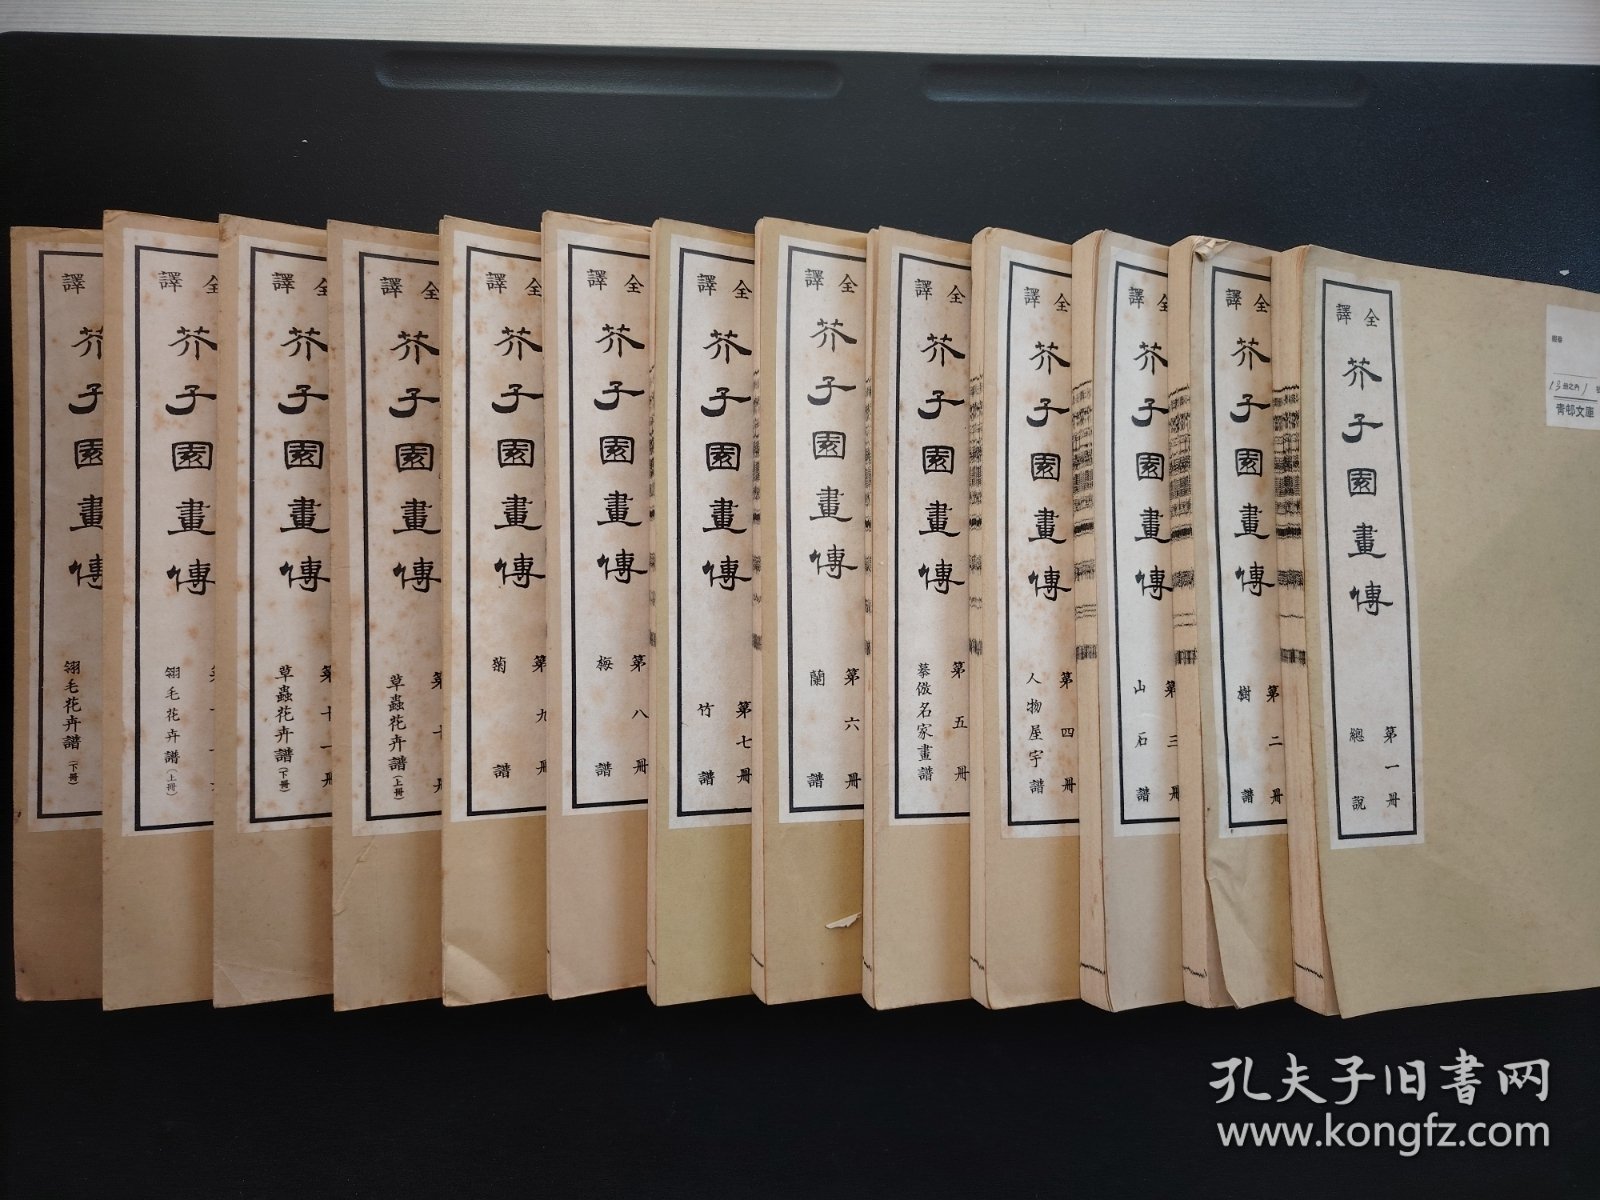 全譯
芥子園畫傳
第一冊
總說
13冊之內1
青邨文庫
全譯
芥子園畫傳
第二冊
樹譜
全譯
芥子園畫傳
第三冊
山石譜
全譯
芥子園畫傳
第四冊
人物屋宇譜
全譯
芥子園畫傳
第五冊
摹倣名家畫譜
全譯
芥子園畫傳
第六冊
蘭譜
全譯
芥子園畫傳
第七冊
竹譜
全譯
芥子園畫傳
第八冊
梅譜
全譯
芥子園畫傳
第九冊
菊譜
全譯
芥子園畫傳
第十冊
草蟲花卉譜(上冊)
全譯
芥子園畫傳
第十一冊
草蟲花卉譜(下冊)
全譯
芥子園畫傳
翎毛花卉譜(上冊)
譯
芥子園畫傳
翎毛花卉譜(下冊)
孔夫子旧书网
www.kongfz.com